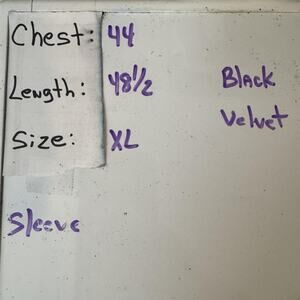 Chest: 44
Length: 48 1/2
Black
Size: XL
Velvet
Sleeve